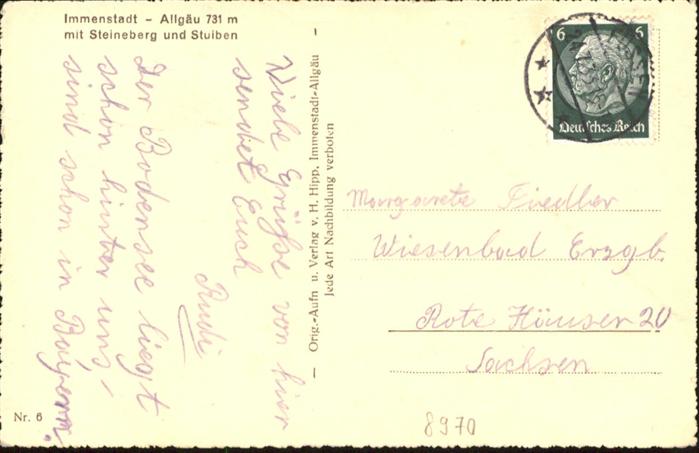 Immenstadt – Allgäu 731 m
mit Steineberg und Stuiben
Viele Grüße von hier
sendet Euch
Rudi
Der Bodensee liegt
schon hinter uns,
sind schon in Bayern.
Orig.-Aufn u. Verlag v. H. Hipp, Immenstadt-Allgäu
Jede Art Nachbildung verboten
6 6
Deutsches Reich
Margarete Fiedler
Wiesenbad Erzgb.
Rote Häuser 20
Sachsen
Nr. 6
8970